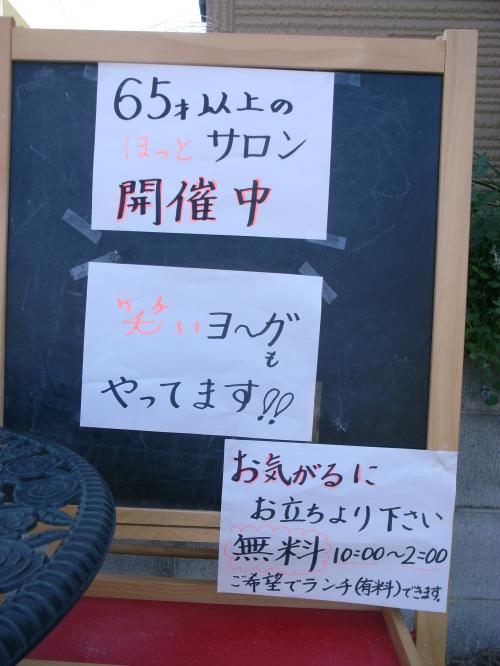 65才以上の
ほっとサロン
開催中
笑いヨ〜ガ
も
やってます!!
お気がるに
お立ちより下さい
無料 10:00〜2:00
ご希望でランチ(有料)できます。